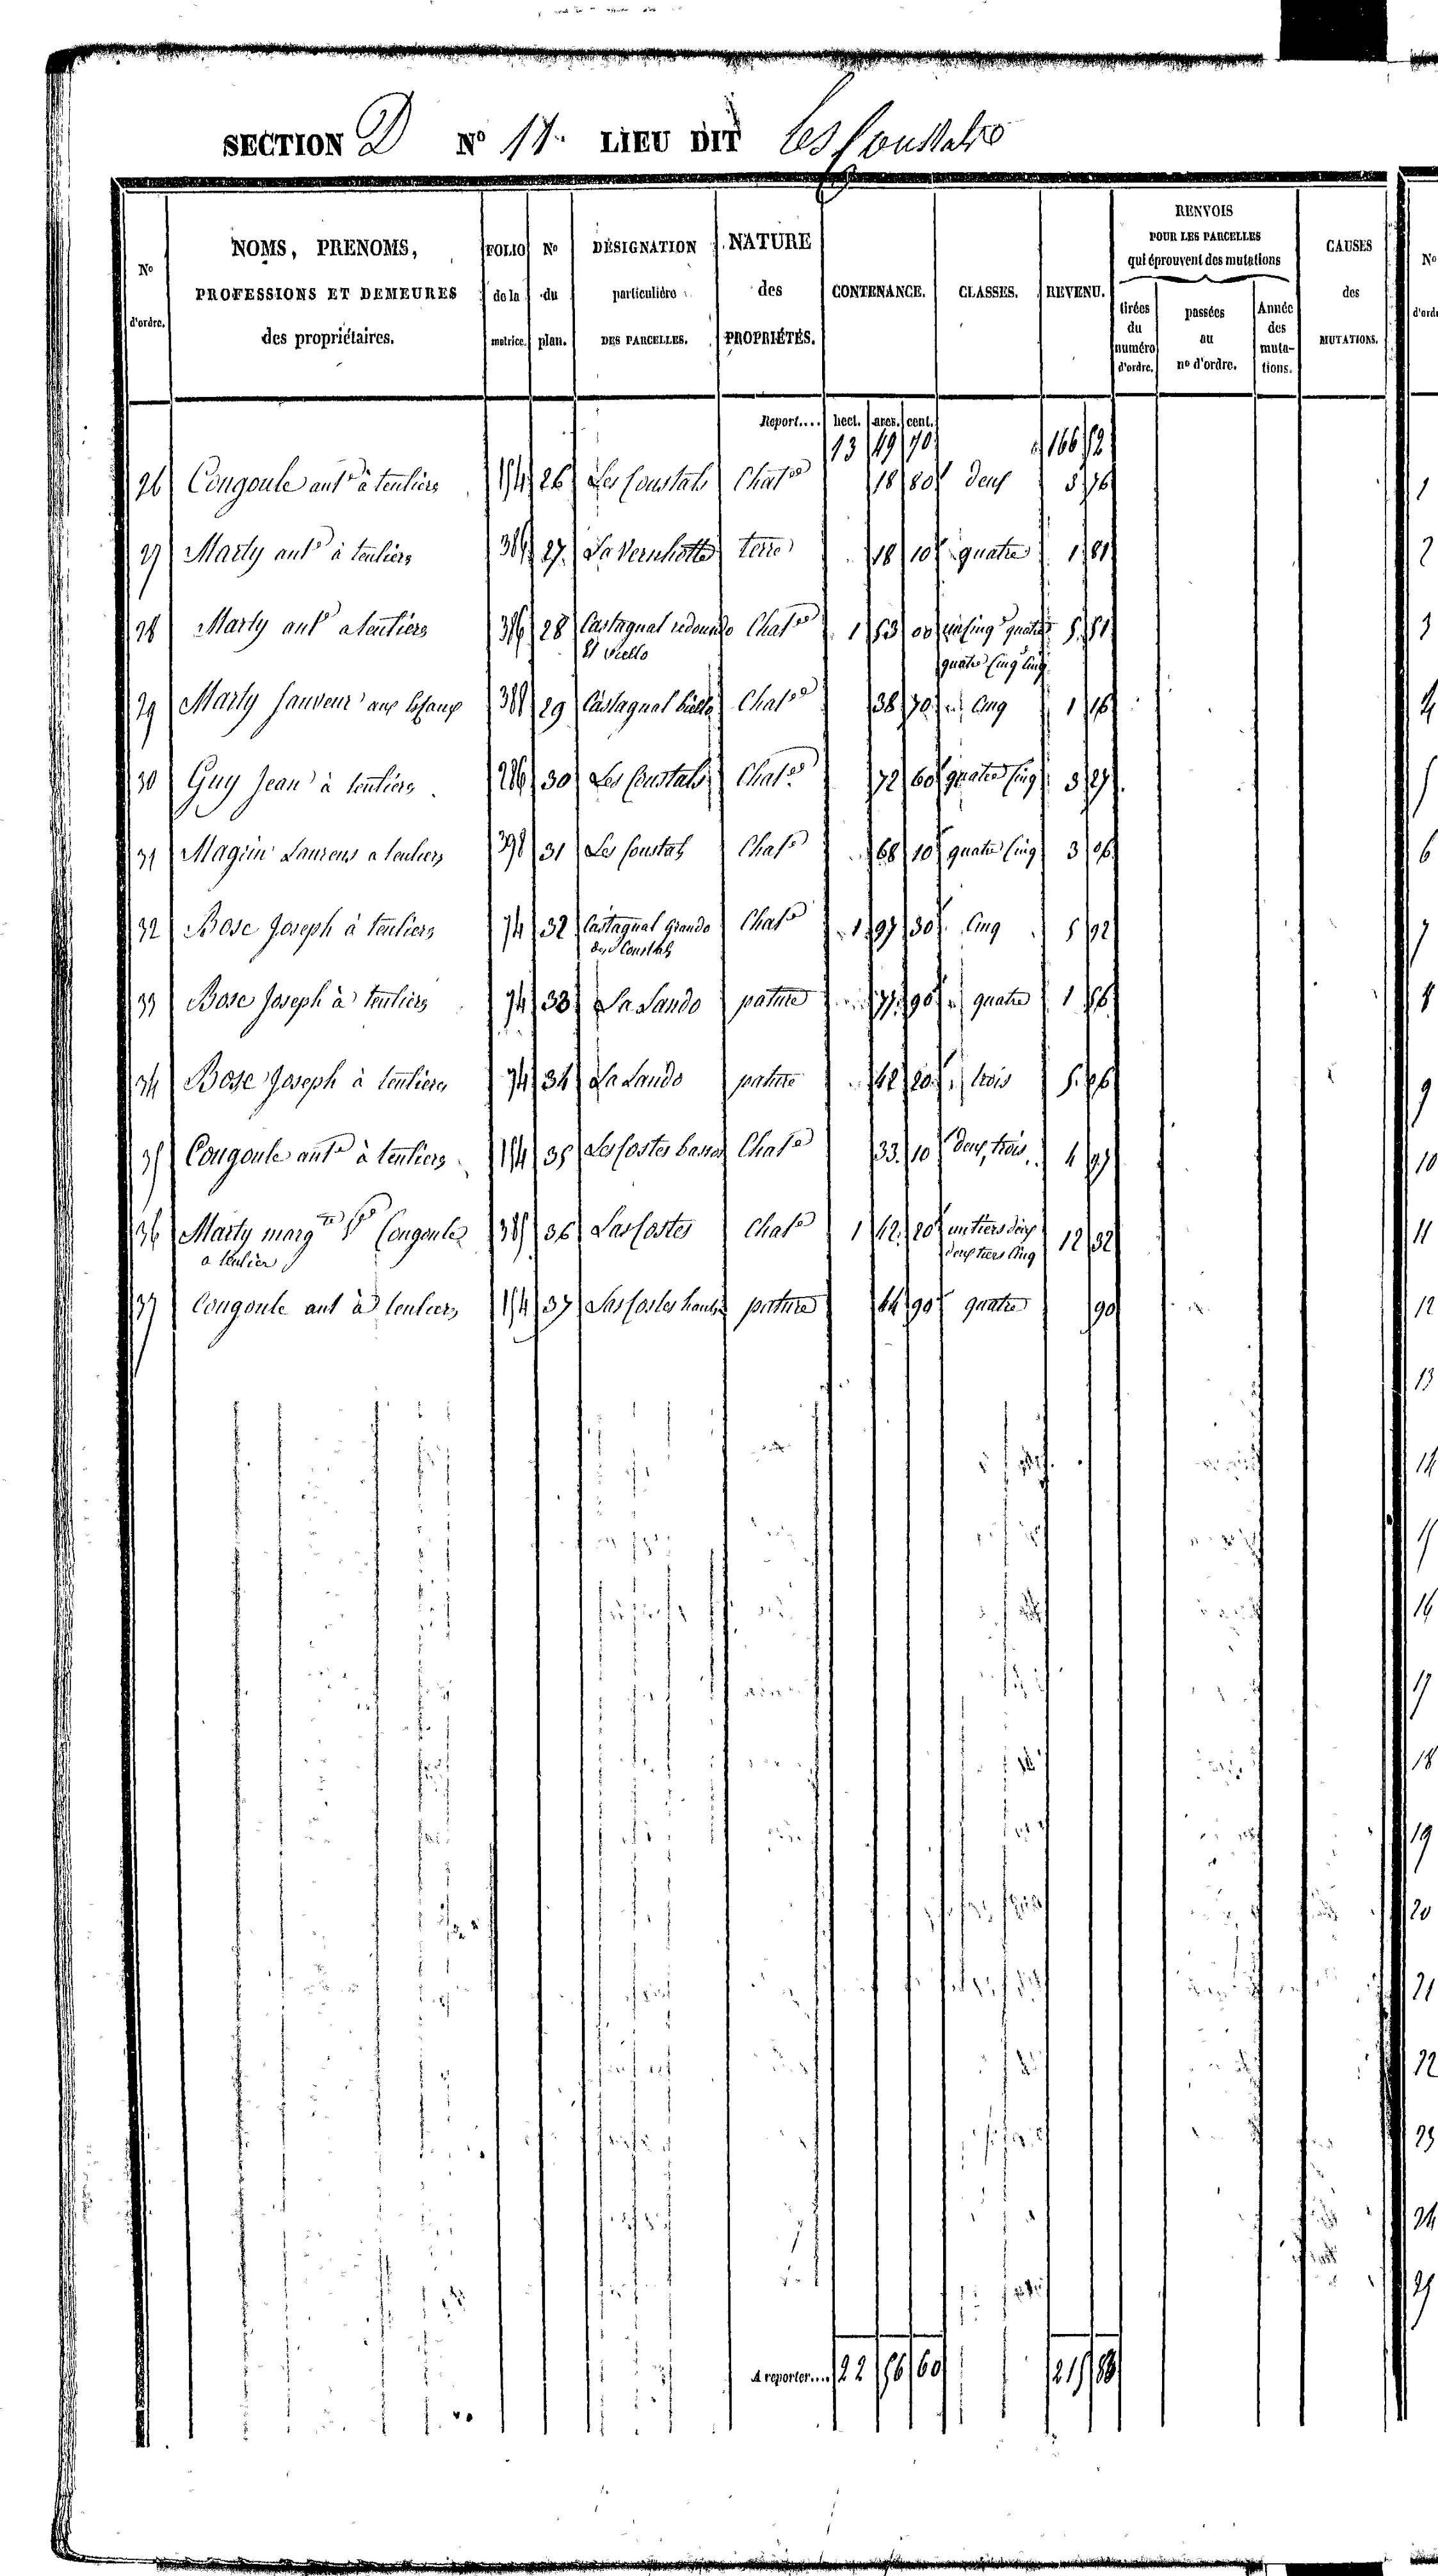 SECTION D N° 11. LIEU DIT Les Coustals
N° d'ordre.
NOMS, PRENOMS, PROFESSIONS ET DEMEURES des propriétaires.
FOLIO de la matrice.
N° du plan.
DÉSIGNATION particulière DES PARCELLES.
NATURE des PROPRIÉTÉS.
CONTENANCE.
CLASSES.
REVENU.
RENVOIS POUR LES PARCELLES qui éprouvent des mutations
tirées du numéro d'ordre.
passées au n° d'ordre.
Année des mutations.
CAUSES des MUTATIONS.
N° d'ord
Report.... hect. ares. cent.
13 49 70 166 52
26 Cougoule ant° à teuliers 154 26 Les Coustals Chat° 18 80 deux 3 76
27 Marty ant° à teuliers 386 27. La Vernhotte terre 18 10 quatre 1 81
28 Marty ant° a teuliers 386 28 Castagnal redoundo Chat° 1 53 00 un cinq° quatre 5 51
El viello quatre cinq° cinq
29 Marty Sauveur aux 388 29 Castagnal biello Chat° 38 70 cinq 1 16
30 Guy Jean à teuliers 286 30 Les Coustals Chat° 72 60 quatre cinq 3 27
31 Magrin Laurens a teuliers 398 31 Les Coustals Chat° 68 10 quatre cinq 3 06
32 Bosc Joseph à teuliers 74 32 Castagnal Grando Chat° 1 97 30 Cinq 5 92
des Coustals
33 Bosc Joseph à teuliers 74 33 La Lando pature 77 90 quatre 1 56
34 Bosc Joseph à teuliers 74 34 La Lando pature 42 20 trois 5 06
35 Cougoule ant° à teuliers 154 35 Las Costes bassos Chat° 33 10 deux, trois 4 97
36 Marty marg te Ve Cougoule 385 36 Las Costes Chat° 1 42 20 un tiers deux 12 32
a teulier deux tiers cinq
37 Cougoule ant à teuliers 154 37 Las Costes hautes pature 44 90 quatre 90
A reporter.... 22 56 60 215 83
1
2
3
4
5
6
7
8
9
10
11
12
13
14
15
16
17
18
19
20
21
22
23
24
25